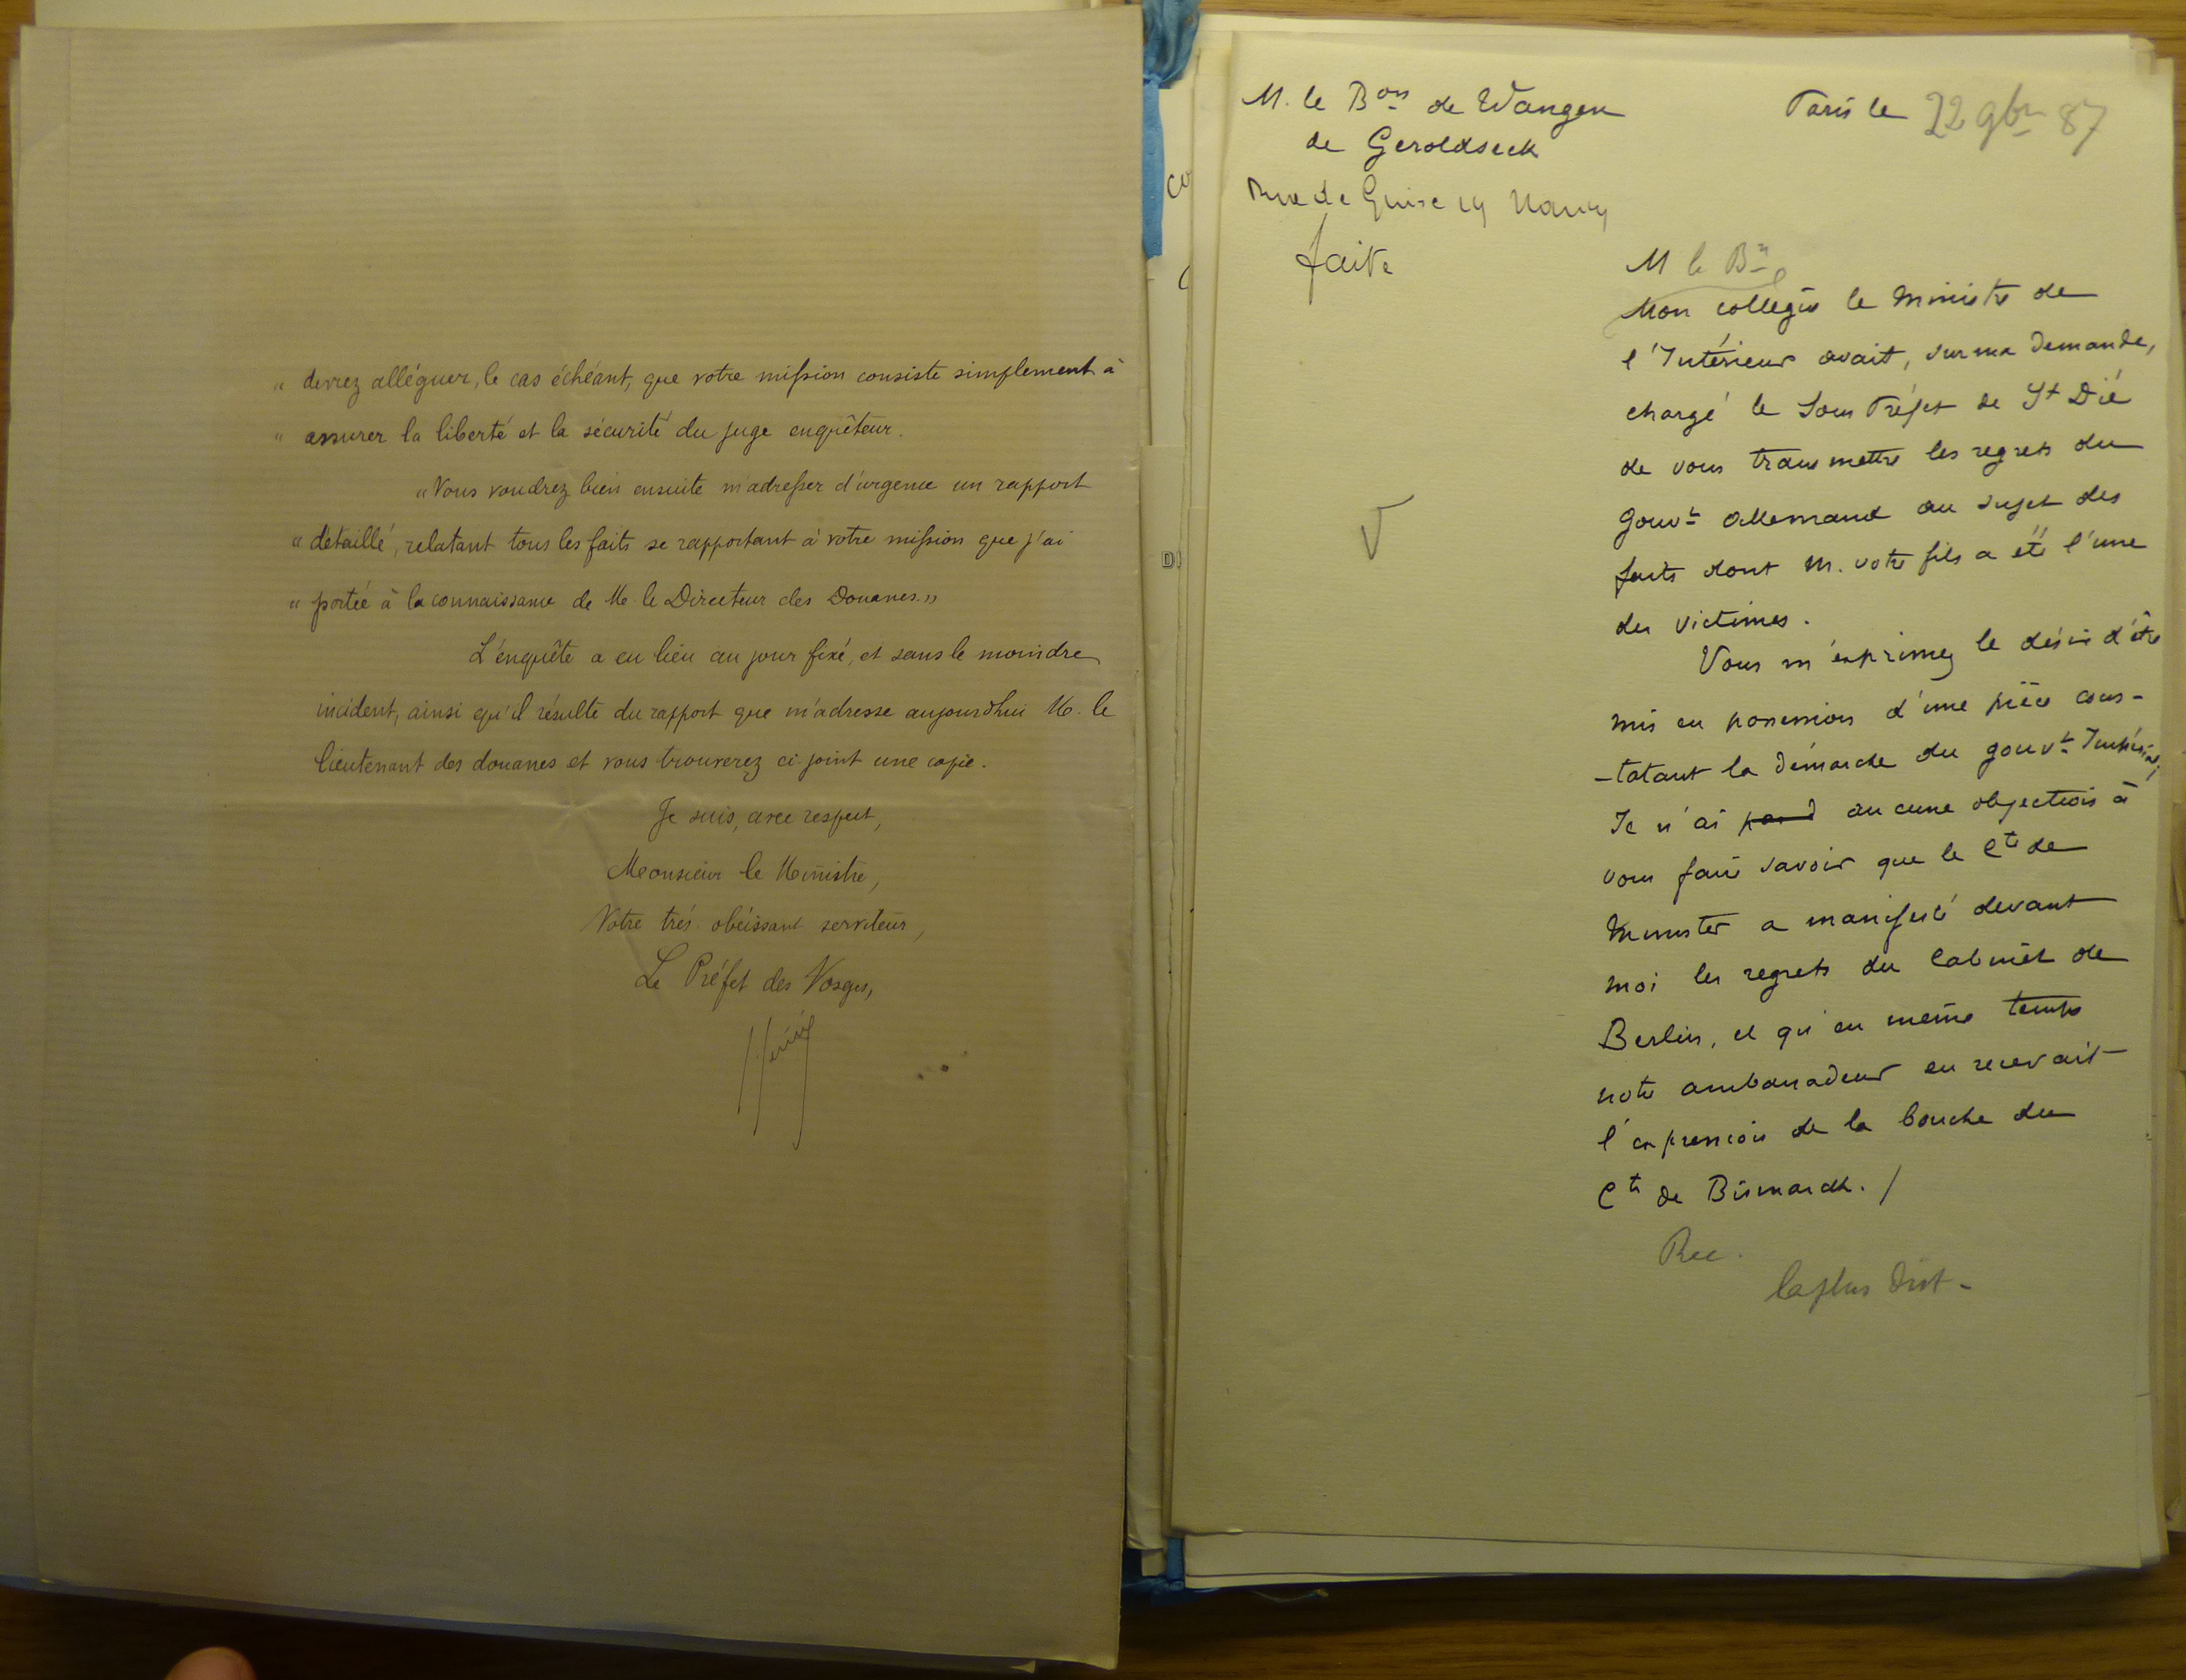 " devrez alléguer, le cas échéant, que votre mission consiste simplement à
" assurer la liberté et la sécurité du juge enquêteur.
" Vous voudrez bien ensuite m'adresser d'urgence un rapport
" détaillé, relatant tous les faits se rapportant à votre mission que j'ai
" portée à la connaissance de M. le Directeur des Douanes. "
L'enquête a eu lieu au jour fixé, et sans le moindre
incident, ainsi qu'il résulte du rapport que m'adresse aujourd'hui M. le
lieutenant des douanes et vous trouverez ci-joint une copie.
Je suis, avec respect,
Monsieur le Ministre,
Votre très obéissant serviteur,
Le Préfet des Vosges,
M. le Bon de Wangen
de Geroldseck
Rue de Guise 19 Nancy
faite
Paris le 22 9bre 87
M le Bn
Mon collègue le Ministre de
l'Intérieur avait, sur ma demande,
chargé le Sous Préfet de St Dié
de vous transmettre les regrets du
Gouvt allemand au sujet des
faits dont M. votre fils a été l'une
des victimes.
Vous m'exprimez le désir d'être
mis en possession d'une pièce cons-
-tatant la démarche du gouvt Impérial,
Je n'ai aucune objection à
vous faire savoir que le Cte de
Munster a manifesté devant
moi les regrets du Cabinet de
Berlin, et qu'en même temps
notre ambassadeur en recevait
l'expression de la bouche du
Cte de Bismarck. /
Rec.
la plus dist -